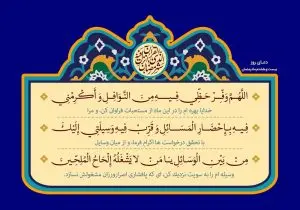 دعای روز
بیست و هشتم ماه رمضان
اللَّهُمَّ وَفِّرْ حَظِّي فِيهِ مِنَ النَّوَافِلِ وَ أَكْرِمْنِي
خدایا بهره ام را در این ماه از مستحبات فراوان کن، و مرا
فِيهِ بِإِحْضَارِ الْمَسَائِلِ وَ قَرِّبْ فِيهِ وَسِيلَتِي إِلَيْكَ
با تحقق درخواست ها اکرام فرما، و از میان وسایل
مِنْ بَيْنِ الْوَسَائِلِ يَا مَنْ لَا يَشْغَلُهُ إِلْحَاحُ الْمُلِحِّينَ
وسیله ام را به سویت نزدیک کن، ای که پافشاری اصرارورزان مشغولش نسازد.